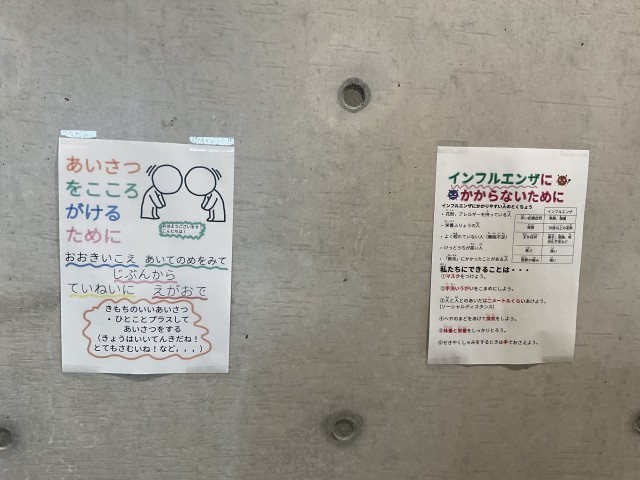 あいさつ
をこころ
がける
ために
おはようございます
こんにちは!
おおきいこえ あいてのめをみて
じぶんから
ていねいに えがおで
きもちのいいあいさつ
・ひとことプラスして
あいさつをする
(きょうはいいてんきだね!
とてもさむいね!など...)
インフルエンザに
かからないために
インフルエンザにかかりやすい人のとくちょう
・花粉、アレルギーを持っている人
・栄養ぶしょうの人
・よく眠れていない人(睡眠不足)
・けっとうちが高い人
・「肺炎」にかかったことがある人
インフルエンザ
発熱
38度以上の高熱
主な症状
強い
私たちにできることは・・・
①マスクをつけよう。
②手洗いうがいをこまめにしよう。
③人と人とのあいだは二メートルくらいあけよう。
(ソーシャルディスタンス)
④へやのまどをあけて換気をしよう。
⑤休養と栄養をしっかりとろう。
⑥せきやくしゃみをするときは手でおさえよう。